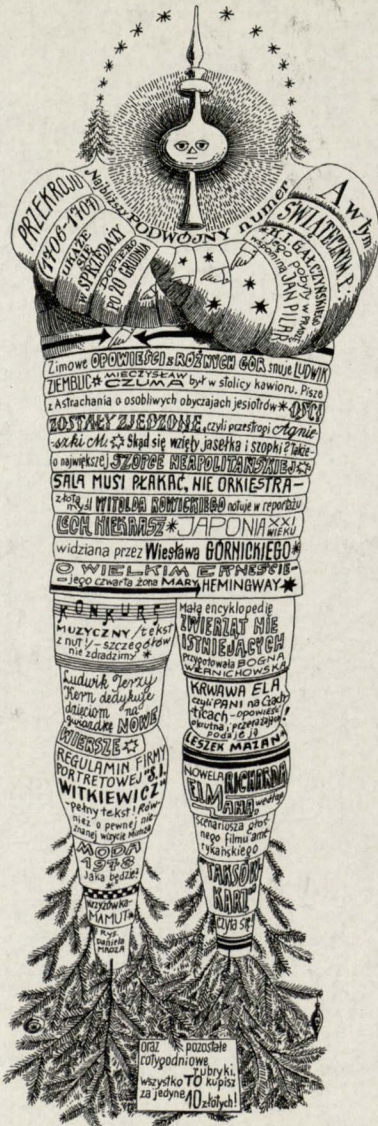 Najbliższy PODWÓJNY numer
PRZEKROJU
(1708-1709)
UKAŻE
SIĘ
w SPRZEDAŻY
DOPIERO
PO 20 GRUDNIA
A w tym
ŚWIĄTECZNYM P.:
*K.I. GAŁCZYŃSKIEGO
i jego pobyty w PRADZE
wspomina JAN PILAŘ
Zimowe OPOWIEŚCI z RÓŻNYCH GÓR snuje LUDWIK
ZIEMBLIC* MIECZYSŁAW CZUMA był w stolicy kawioru. Pisze
z Astrachania o osobliwych obyczajach jesiotrów* OŚCI
ZOSTAŁY ZJEDZONE, czyli przestrogi Agnie-
szki M.* Skąd się wzięły jasełka i szopki? Także-
o największej SZOPCE NEAPOLITAŃSKIEJ*
SALA MUSI PŁAKAĆ, NIE ORKIESTRA-
złotą myśl WITOLDA ROWICKIEGO notuje w reportażu
LECH NIEKRASZ* JAPONIA XXI WIEKU
widziana przez Wiesława GÓRNICKIEGO*
O WIELKIM ERNEŚCIE-
-jego czwarta żona MARY HEMINGWAY*
KONKURS
MUZYCZNY /tekst
z nut!/-szczegółów
nie zdradzimy*
Ludwik Jerzy
Kern dedykuje
dzieciom na
gwiazdkę NOWE
WIERSZE*
REGULAMIN FIRMY
PORTRETOWEJ "S.I.
WITKIEWICZ"
-pełny tekst! Rów-
nież o pewnej nie-
znanej wizycie Mistrza
MODA
1978
Jaka będzie?
KRZYŻÓWKA-
MAMUT*
Rys.
Daniela
MROZA
Małą encyklopedię
ZWIERZĄT NIE
ISTNIEJĄCYCH
przygotowała BOGNA
WERNICHOWSKA
KRWAWA ELA
czyli PANI na Czach-
ticach-opowieść
okrutną i przerażającą!
podaje ją
LESZEK MAZAN*
NOWELA RICHARDA
ELMANA, według
scenariusza głoś-
nego filmu ame-
rykańskiego
"TAKSÓW-
KARZ"
czyta się!
oraz pozostałe
cotygodniowe
rubryki.
wszystko TO kupisz
za jedyne 10 złotych!